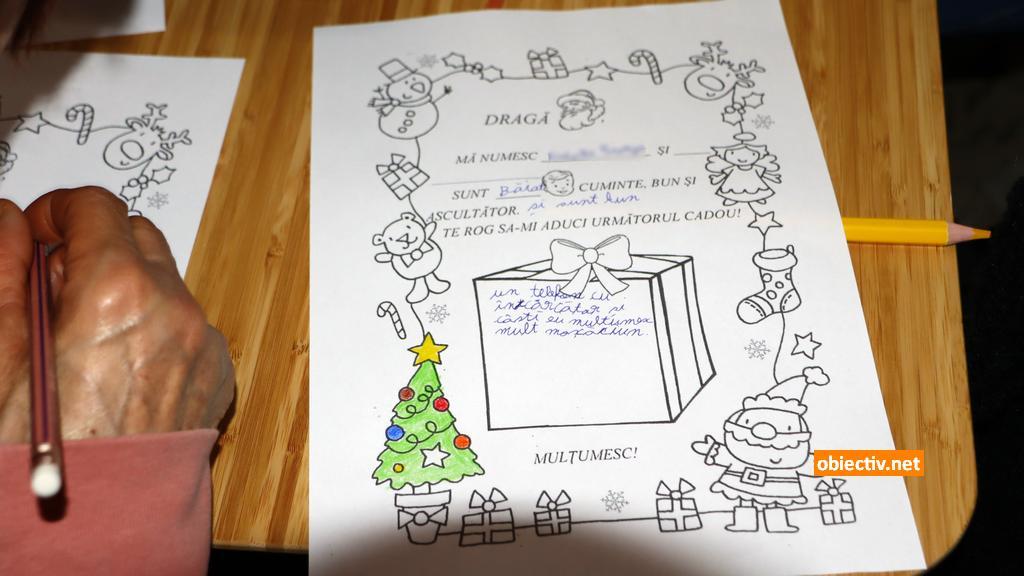 DRAGĂ
MĂ NUMESC ȘI
SUNT Băiat CUMINTE, BUN ȘI
ASCULTĂTOR. și sunt bun
TE ROG SA-MI ADUCI URMĂTORUL CADOU!
un telefon cu
încărcătar si
căsti eu multumex
mult moxaciun
MULȚUMESC!
obiectiv.net